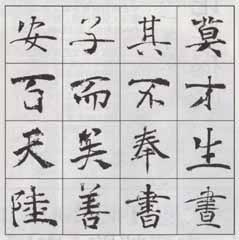 莫才生晝
其不奉書
子而美善
安百天陸